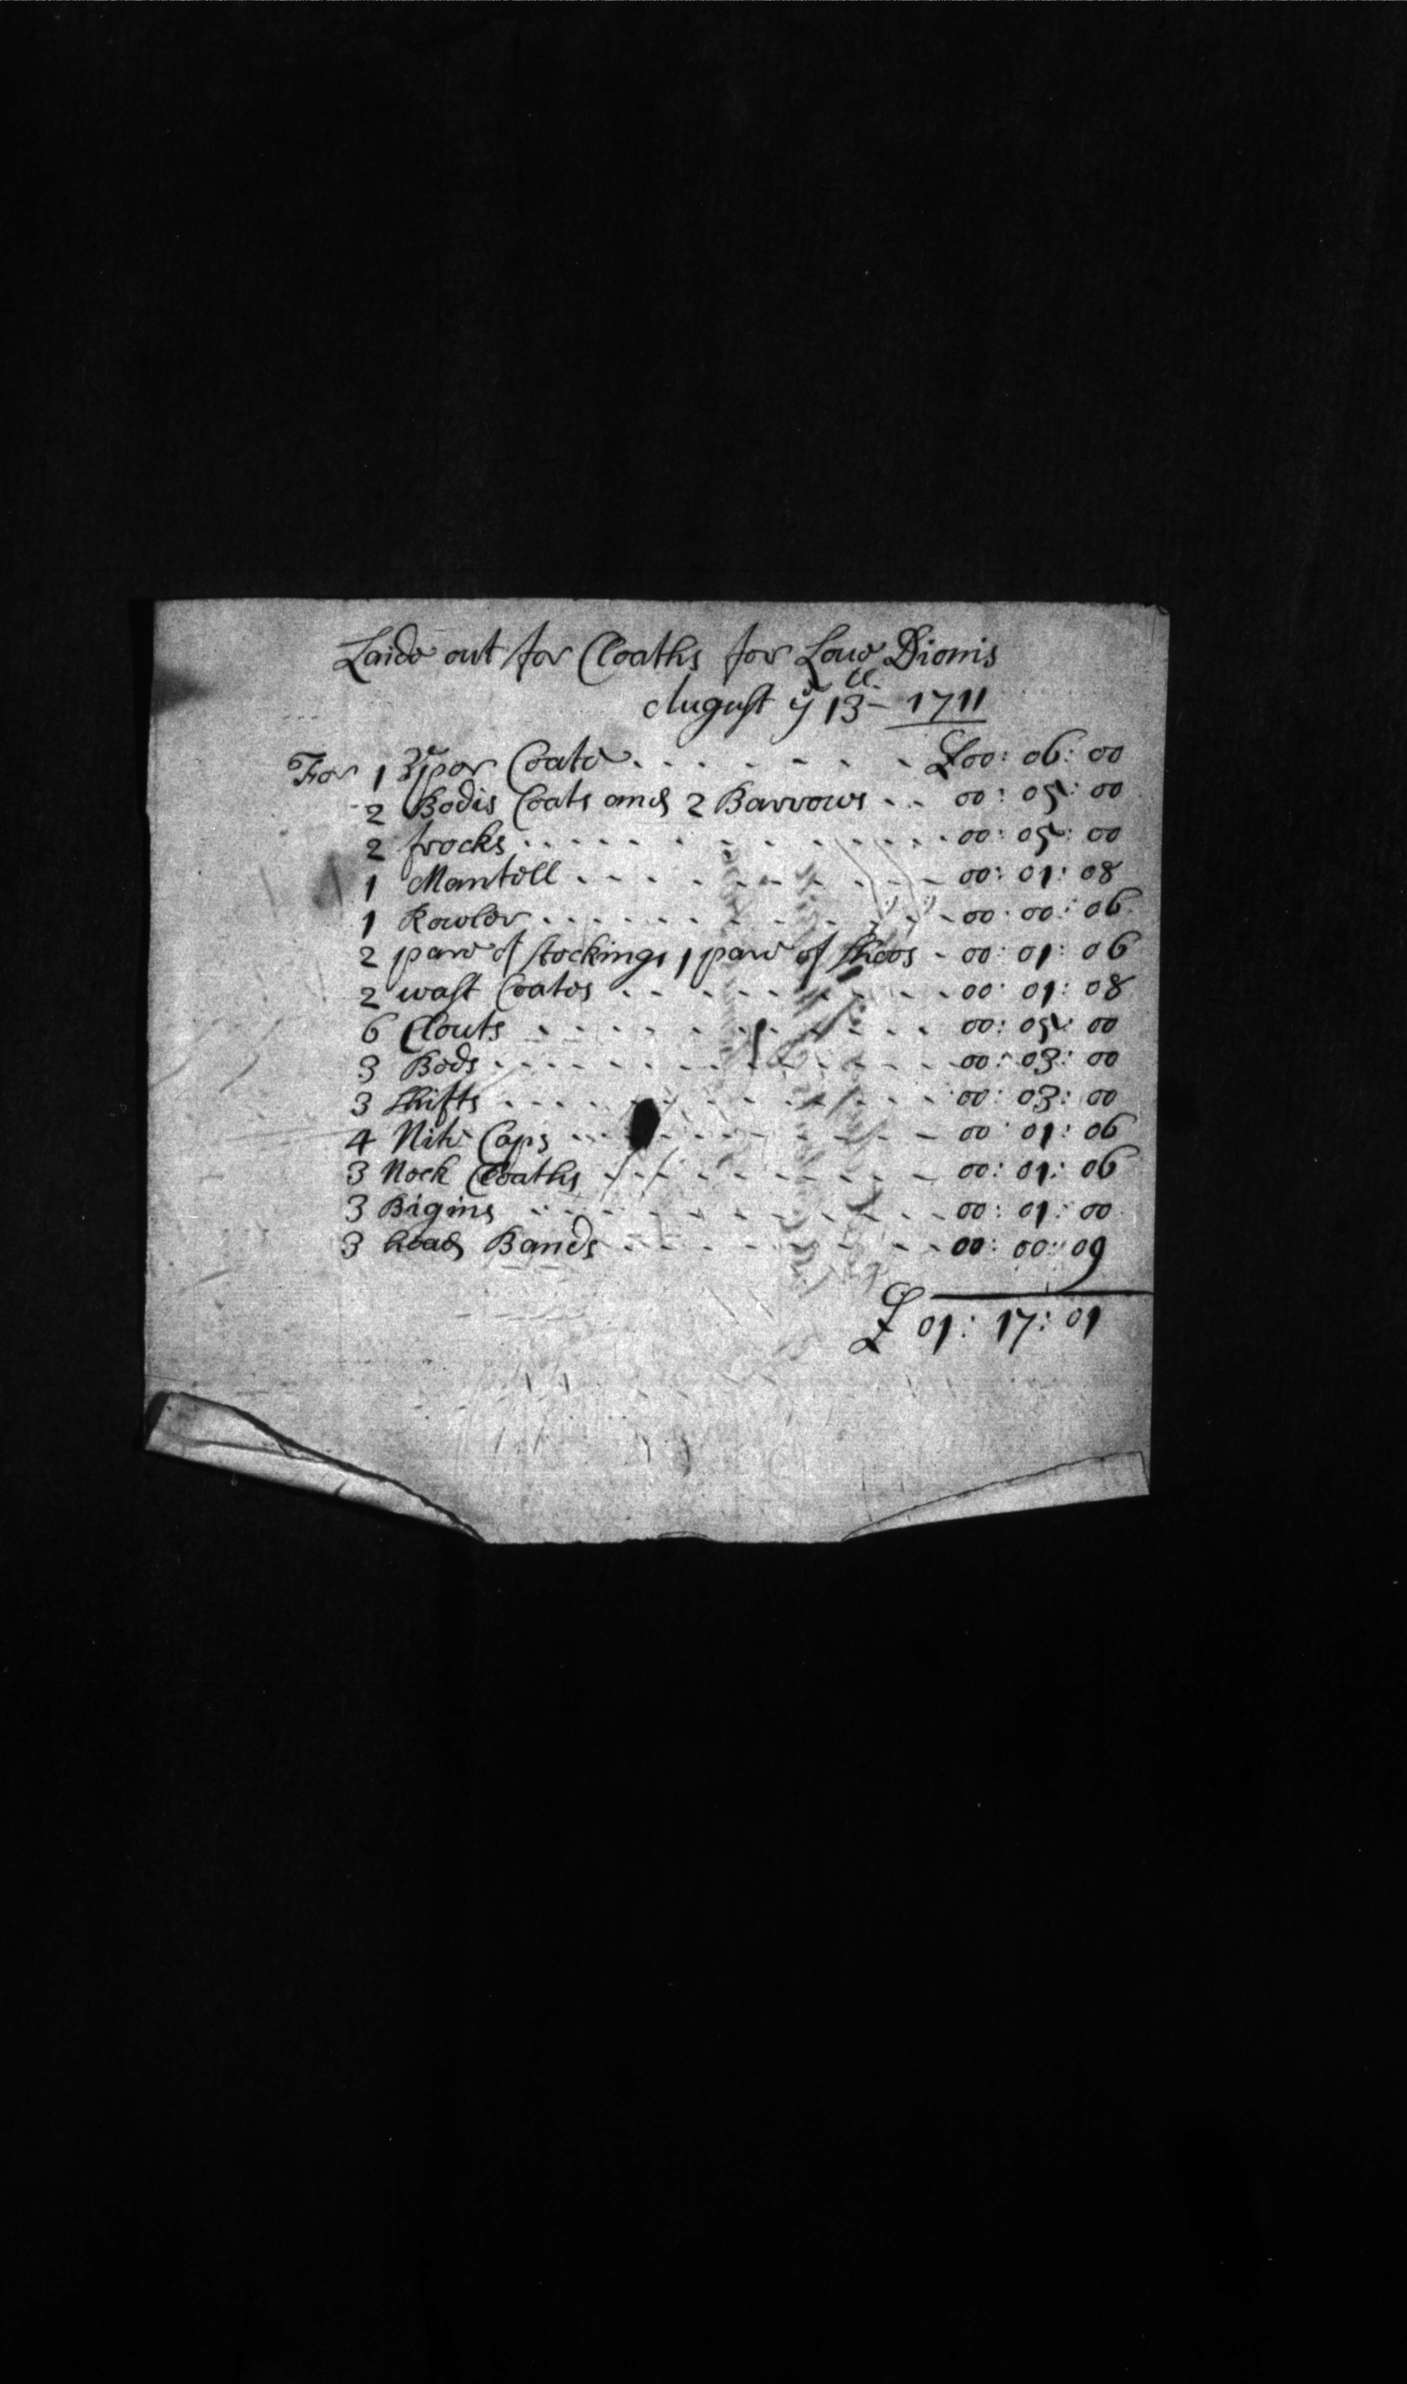 Laide out for Cloaths for Love Dionis
August ye 13th 1711
For 1 Uper Coate . . . . . . . £00: 06: 00
2 Bodis Coats and 2 Barrows . . 00: 05: 00
2 frocks . . . . . . . . . . . 00: 05: 00
1 Mantell . . . . . . . . . . 00: 01: 08
1 Rowler . . . . . . . . . . . 00: 00: 06
2 pare of stockings 1 pare of Shoos - 00: 01: 06
2 wast Coates . . . . . . . . . 00: 01: 08
6 Clouts . . . . . . . . . . 00: 05: 00
3 Beds . . . . . . . . . . . . 00: 03: 00
3 Shifts . . . . . . . . . . . 00: 03: 00
4 Nite Caps . . . . . . . . . 00: 01: 06
3 Neck Cloaths . . . . . . . . 00: 01: 06
3 Bigins . . . . . . . . . . . 00: 01: 00
3 head Bands . . . . . . . . . 00: 00: 09
£ 01: 17: 01